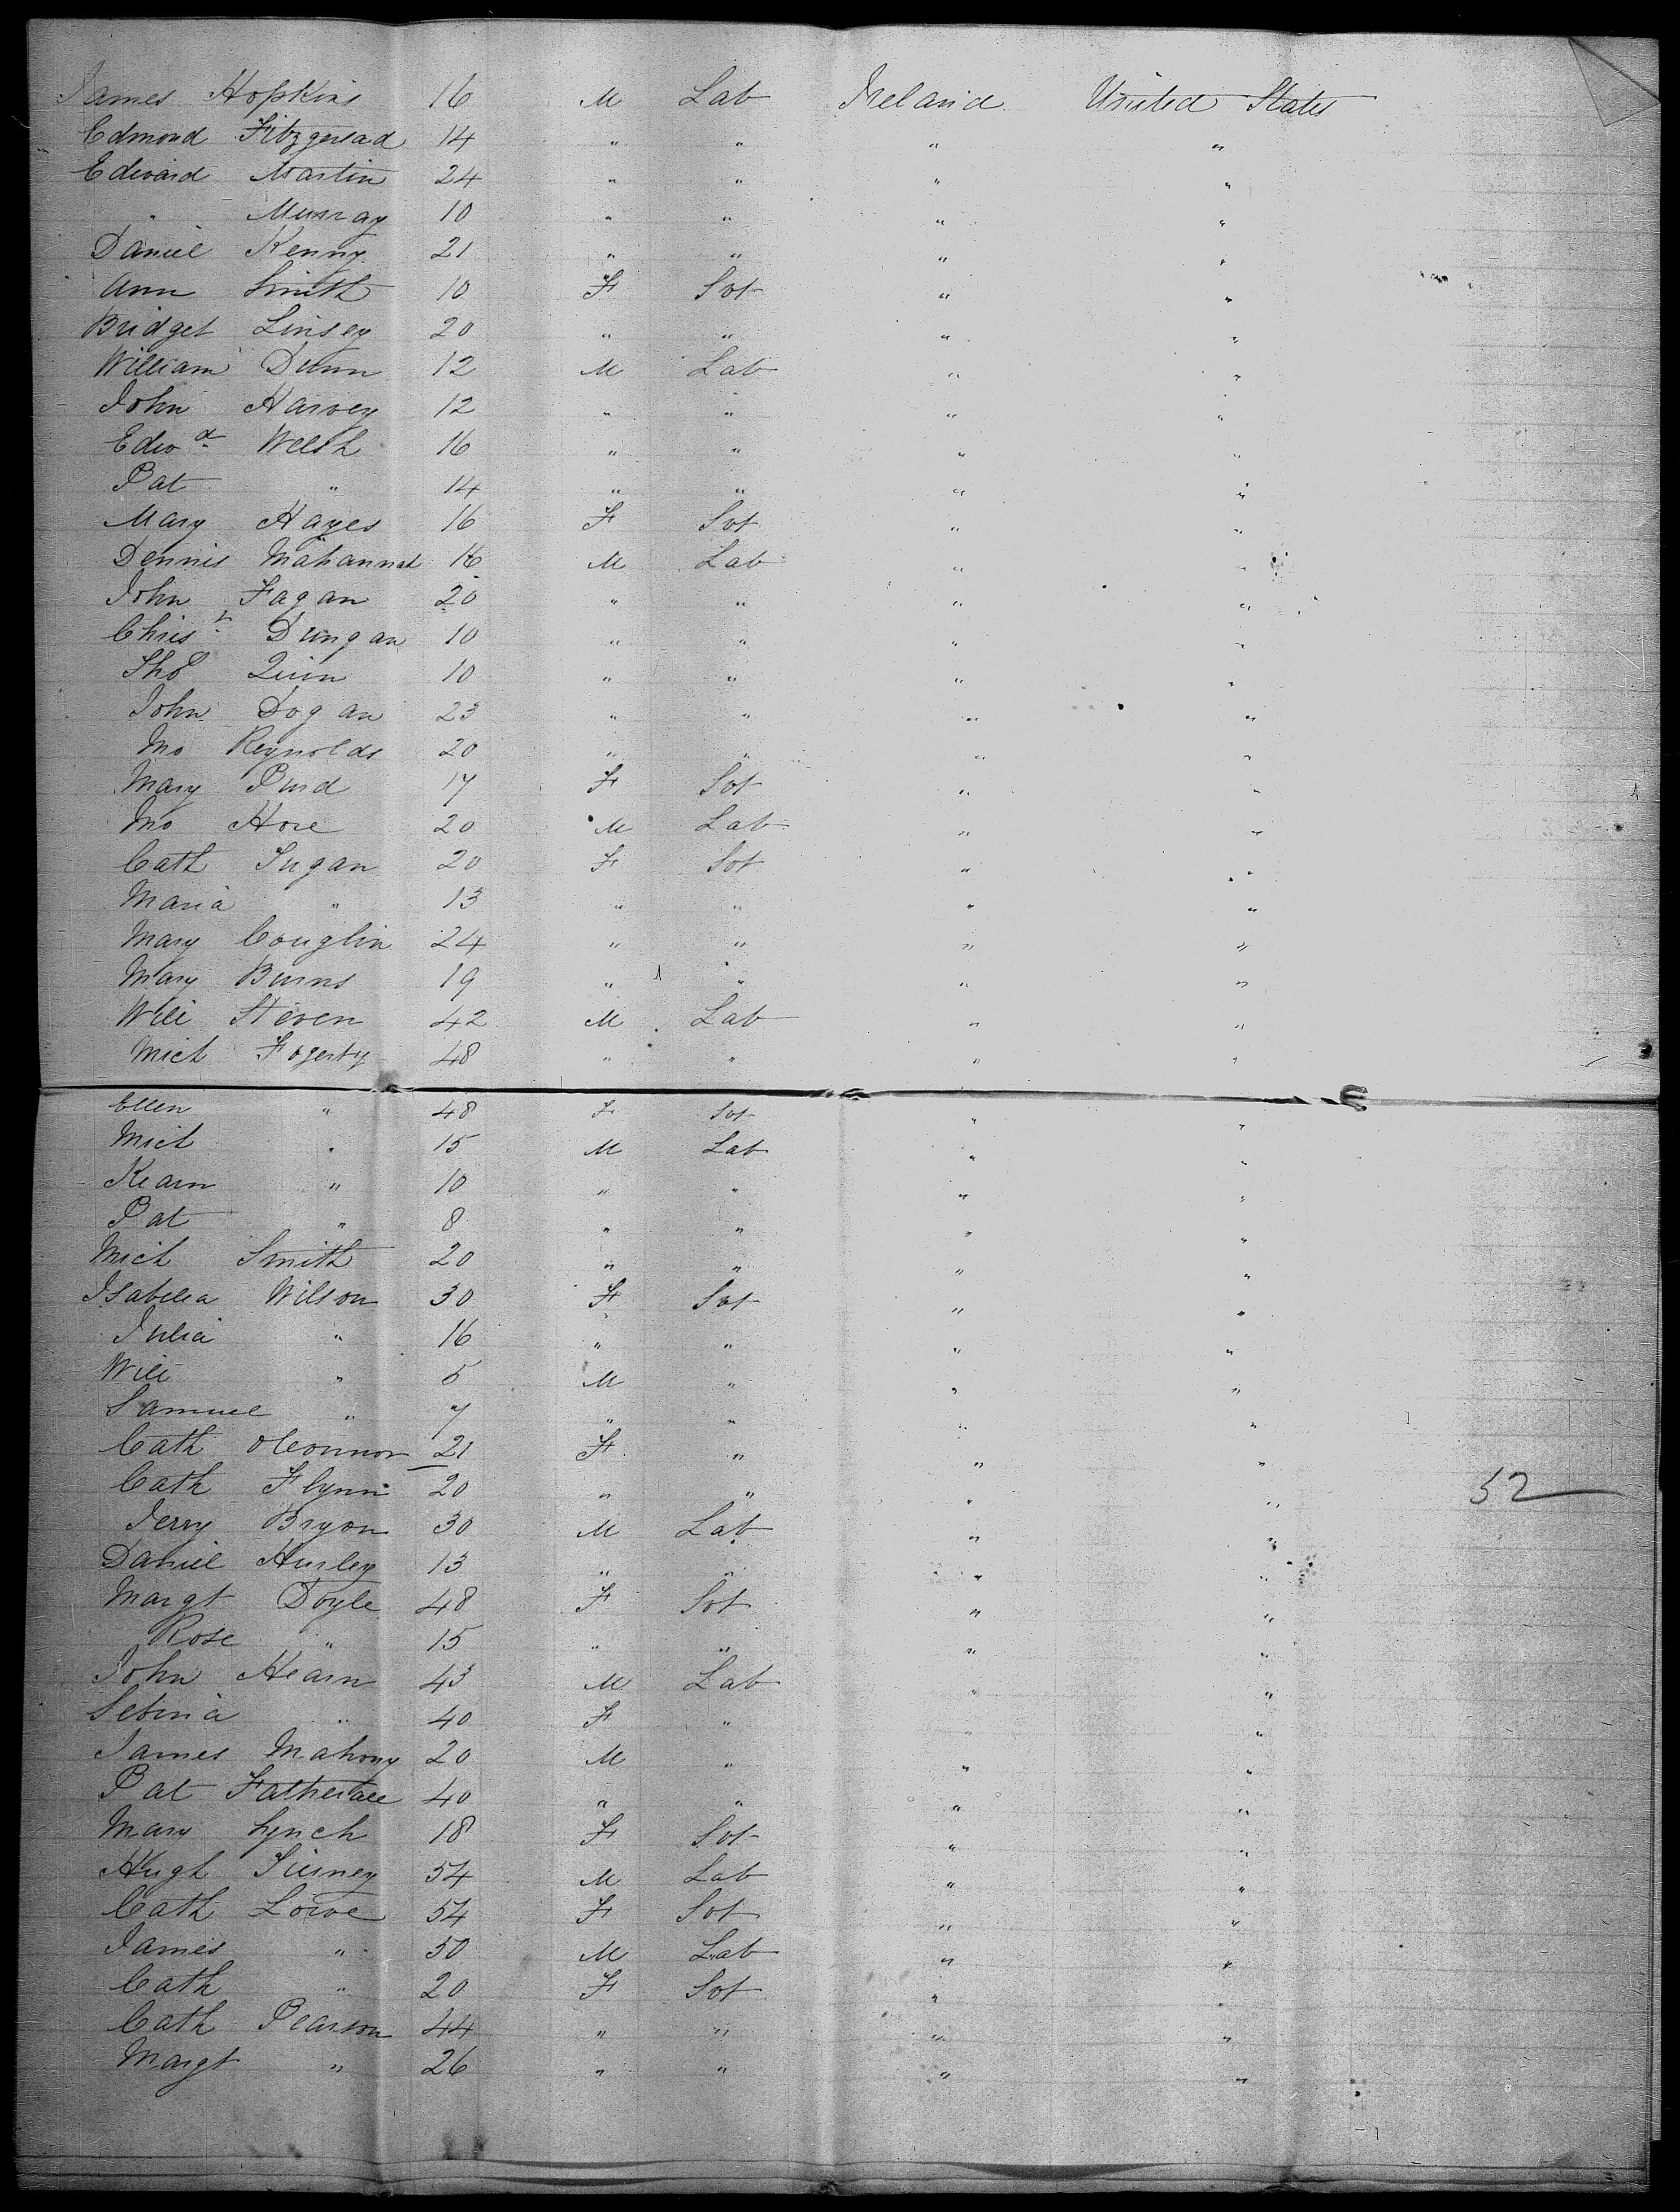 James Hopkins 16 M Lab Ireland United States
Edmond Fitzgerald 14 " " " "
Edward Martin 24 " " " "
" Murray 10 " " " "
Daniel Kenny 21 " " " "
Ann Smith 10 F Svt " "
Bridget Linsey 20 " " " "
William Dunn 12 M Lab " "
John Harvey 12 " " " "
Edwd Welsh 16 " " " "
Pat " 14 " " " "
Mary Hayes 16 F Svt " "
Dennis 16 M Lab " "
John Fagan 20 " " " "
Christ Dungan 10 " " " "
Tho Quin 10 " " " "
John Dogan 23 " " " "
Mo Reynolds 20 " " " "
Mary Purd 17 F Svt " "
Mo Hore 20 M Lab " "
Cath Sugan 20 F Svt " "
Maria " 13 " " " "
Mary Couglin 24 " " " "
Mary Burns 19 " " " "
Will Steven 42 M Lab " "
Mich Fogerty 48 " " " "
Ellen " 48 F Svt " "
Mich " 15 M Lab " "
Kearn " 10 " " " "
Pat " 8 " " " "
Mich Smith 20 " " " "
Isabella Wilson 30 F Svt " "
Julia " 16 " " " "
Will " 5 M " " "
Samuel " 7 " " " "
Cath OConnor 21 F " " "
Cath Flynn 20 " " " " 52
Jerry Bryon 30 M Lab " "
Daniel Hurley 13 " " " "
Margt Doyle 48 F Svt " "
Rose " 15 " " " "
John Hearn 43 M Lab " "
Sebina " 40 F " " "
James Mahony 20 M " " "
Pat 40 " " " "
Mary Lynch 18 F Svt " "
Hugh 54 M Lab " "
Cath Lowe 54 F Svt " "
James " 50 M Lab " "
Cath " 20 F Svt " "
Cath Pearson 44 " " " "
Margt " 26 " " " "